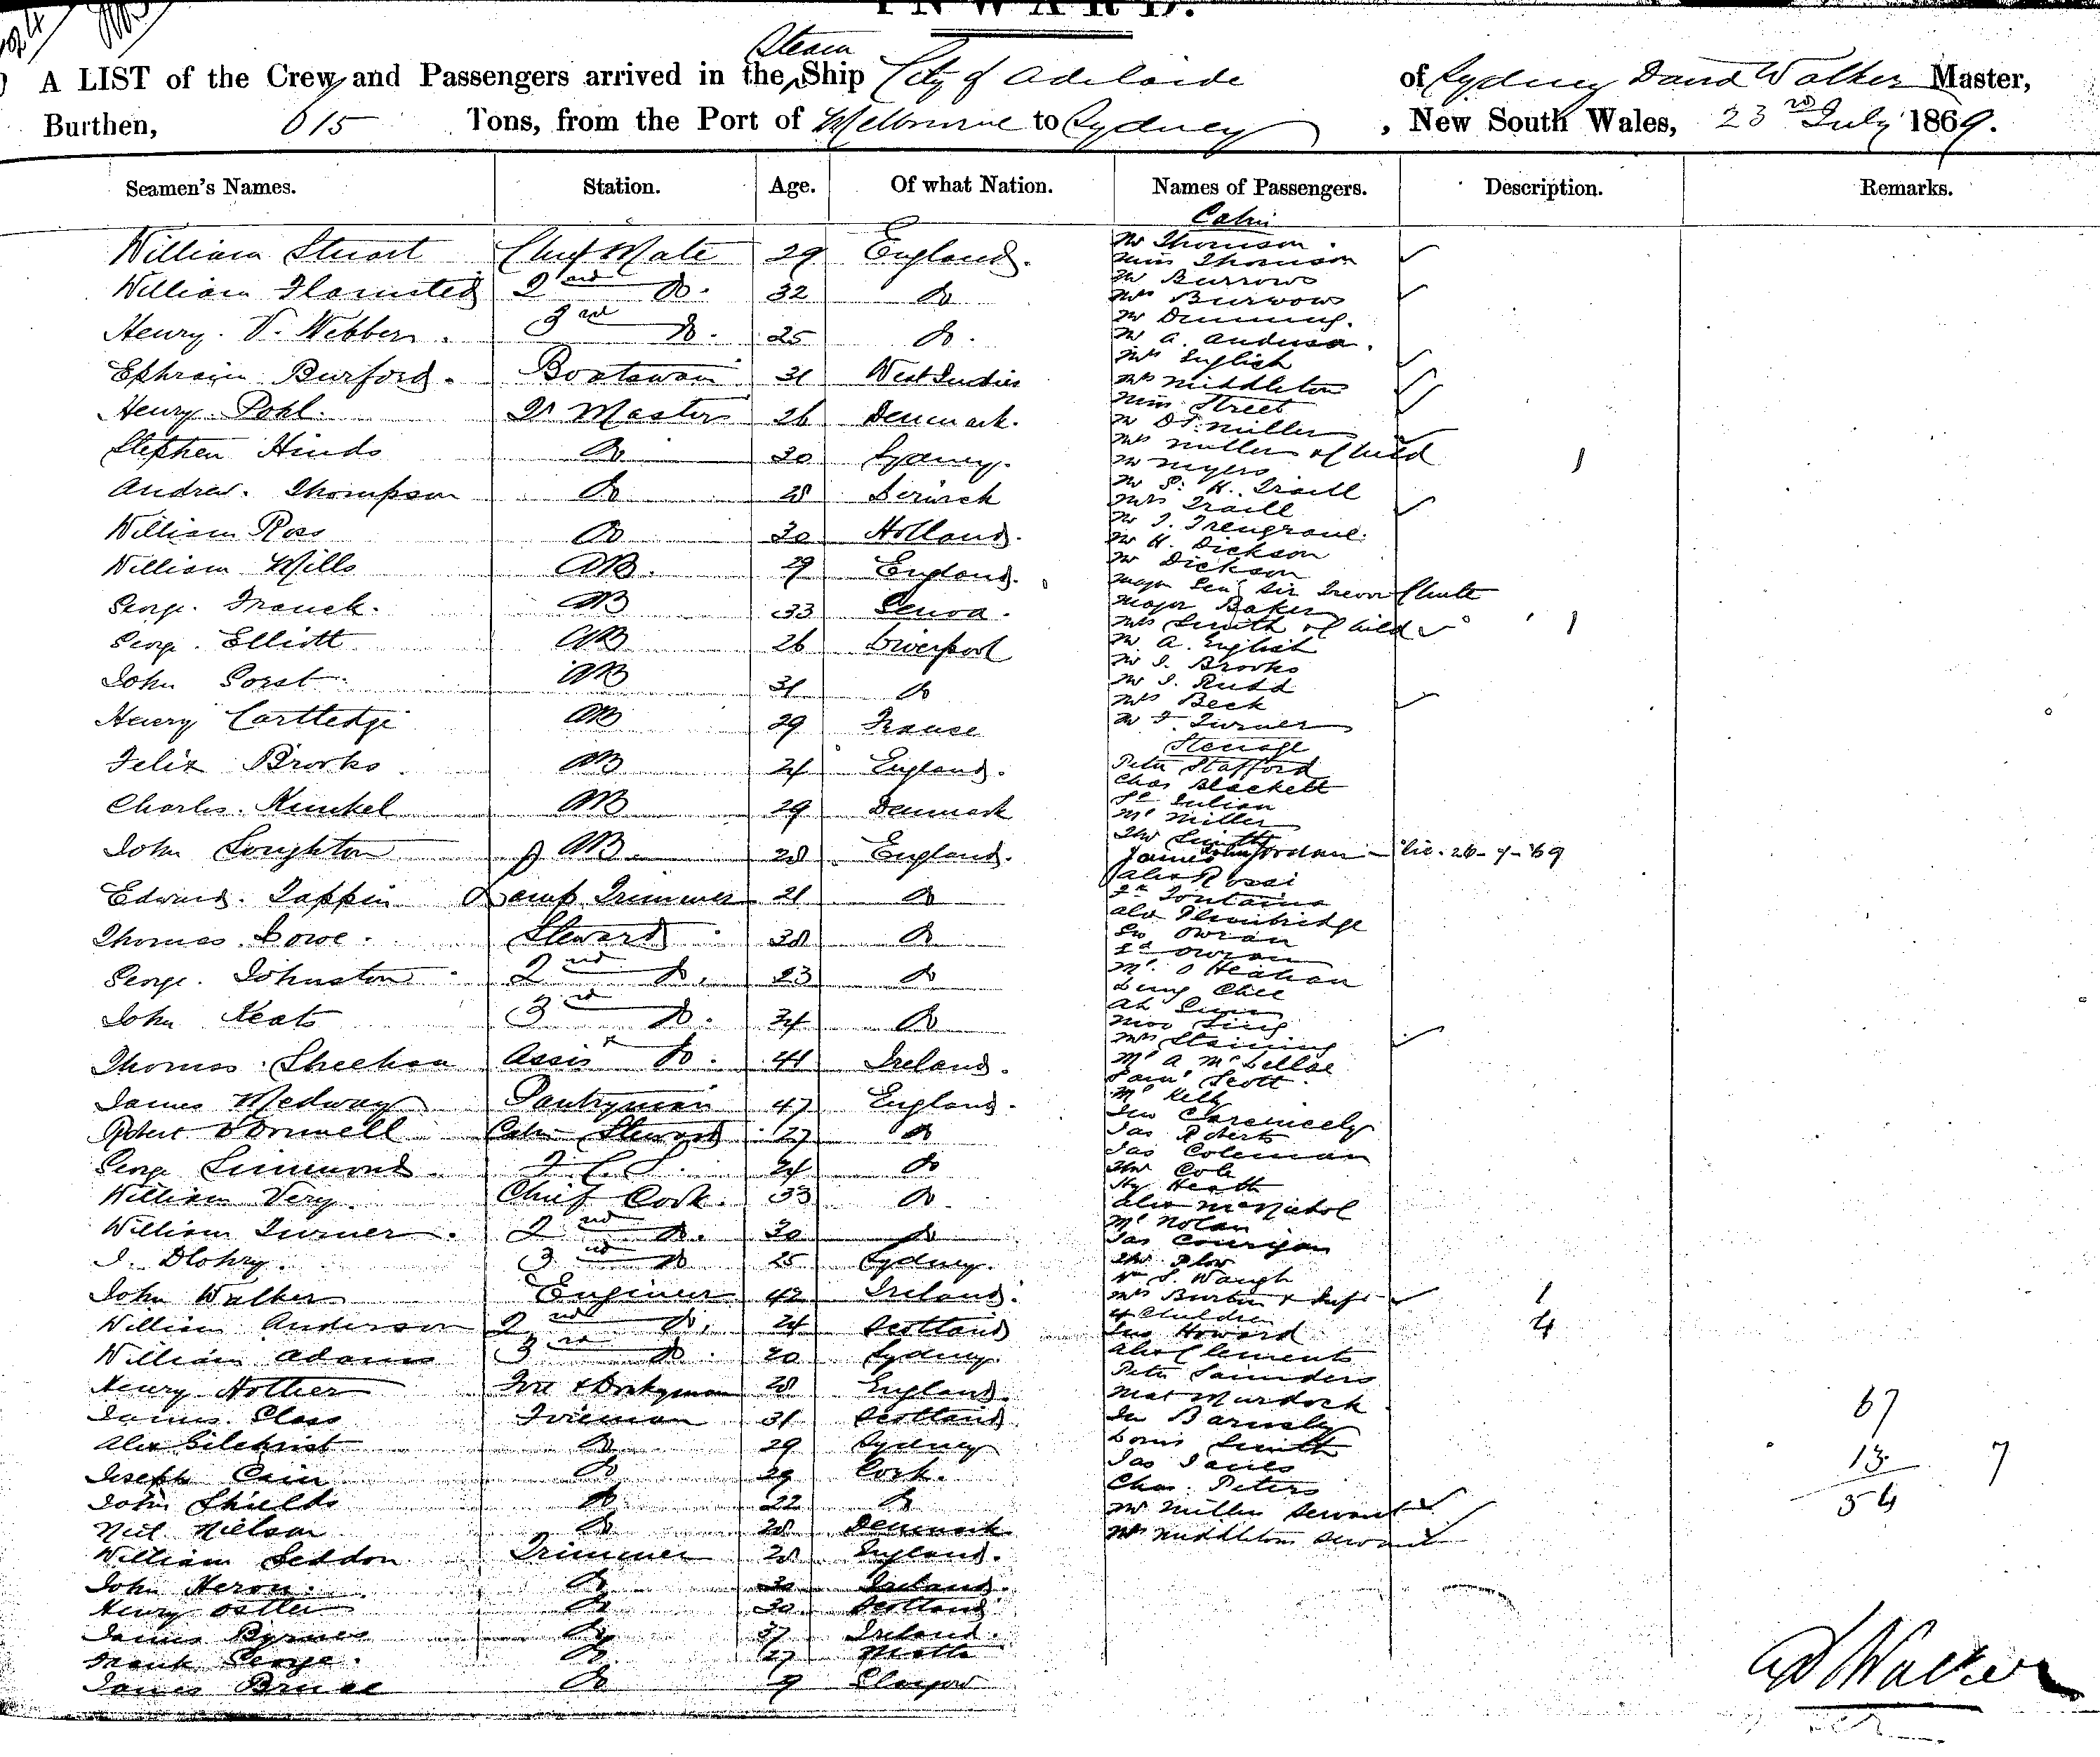 INWARD.
Steam
A LIST of the Crew and Passengers arrived in the Ship City of Adelaide of Sydney David Walker Master,
Burthen, 615 Tons, from the Port of Melbourne to Sydney, New South Wales, 23rd July 1869.
Seamen's Names. Station. Age. Of what Nation. Names of Passengers. Description. Remarks.
William Stuart Chief Mate 29 England.
William Flamsted 2nd Do. 32 Do
Henry. V. Webber. 3rd Do. 25 Do.
Ephraim Burford. Boatswain 31 West Indies
Henry. Pohl. Qr Master 26 Denmark.
Stephen Hinds Do 30 Sydney.
Andrew. Thompson Do 28
William Ross Do 30 Holland.
William Mills AB. 29 England.
George. Franck. AB 33 Genoa.
George. Elliott AB 26 Liverpool
John AB 31 Do
Henry Cartledge AB 29 France
Felix Brooks. AB 24 England.
Charles. Kunkel AB 29 Denmark
John Loughton AB. 28 England.
Edward. Tappin Lamp Trimmer 21 Do
Thomas. Lowe. Steward 38 Do
George. Johnston 2nd Do. 23 Do
John Keats 3rd Do. 34 Do
Thomas. Sheehan Assist Do. 41 Ireland.
James Medway Pantryman 47 England.
Robert O'Donnell Cabin Steward 27 Do
George Simmonds. F. C. S. 24 Do
William Very. Chief Cook. 33 Do.
William Turner. 2nd Do. 30 Do
J. Dlohry. 3rd Do 25 Sydney.
John Walker Engineer 42 Ireland.
William Anderson 2nd Do. 24 Scotland
William Adams 3rd Do. 20 Sydney.
Henry Hollier Fore & Donkeyman 28 England.
James. Class Fireman 31 Scotland
Alex Gilchrist Do 29 Sydney
Joseph Cain Do 29 Cork.
John Shields Do 22 Do
Neil Nielson Do 28 Denmark
William Seddon Trimmer 28 England.
John Heron. Do 30 Ireland.
Henry Ostler Do 30 Scotland
James Byrnes Do 37 Ireland.
Frank George. Do 27 Malta
James Bruce Do 9 Glasgow
Cabin
Mr Thomson.
Miss Thomson
Mr Burrows
Mrs Burrows
Mr Denning.
Mr A. Anderson.
Mrs English
Mrs Middleton
Miss Street
Mr D. F. Miller
Mrs Miller & Child 1
Mr Myers
Mr S. H. Traill
Mrs Traill
Mr J. Trengrove.
Mr H. Dickson
Mr Dickson
Major Genl Sir Trevor Chute
Major Baker
Mrs Smith & Child 1
Mr A. English
Mr J. Brooks
Mr J. Rudd
Mrs Beck
Mr F. Turner
Steerage
Peter Stafford
Chas Blackett
St Julian
Mr Miller
Thos Smith
James John Jordan - lic. 26-7-69
Alex Rossi
Fontaine
Alex Plumbridge
Owran
Owran
Mr. O'Heahan
Lung Chee
Ah
Moo Ling
Mrs Staining
Mr A McLellae
Saml Scott
Mr Kelly
Jas Roberts
Jas Coleman
Thos Cole
Hy. Heath
Alex McNichol
Mr Nolan
Jas Courigan
Thos Plow
Wm S. Waugh
Mrs Burton & Inft 1
4 Children 4
Jno Howard
Alex Clements
Peter Saunders
Mat Murdock
Jn Barnsley
Louis Smith
Jas Janies
Chas. Peters
Mr Millers Servant
Mrs Middletons Servant
67
13 7
54
D Walker